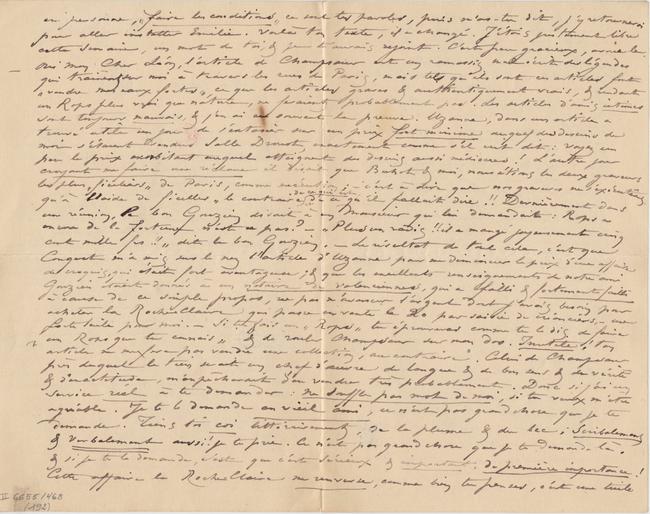 en personne, "faire les conditions", ce sont tes paroles, puis m'as-tu dit, j'y retournerai
pour aller installer Emilie. Voilà ton texte, il a changé. J'étais justement libre
cette semaine, un mot de toi, & je t'aurais rejoint. C'est peu gracieux,
mon Cher Léon, l'article de Champsaur est un ramassis
qui me moi à travers les rues de Paris, mais tels qu'ils sont ces articles font
vendre mes eaux fortes, ce que les articles graves & authentiquement vrais, &
un Rops plus vrai que nature, ne feraient probablement pas. Les articles d'amis intimes
sont toujours mauvais, & j'en ai eu souvent la preuve. Uzanne, dans un article a
trouvé utile un jour de s'extasier sur un prix fort minime auquel des dessins de
moi s'étaient vendus Salle Drouot, exactement comme s'il eut dit: voyez un
peu le prix auquel atteignent des dessins aussi médiocres! L'autre jour
croyant me faire une réclame il disait que Buhot & moi, nous étions les deux graveurs
les plus "ficeliers" de Paris, c'est à dire que nos gravures ne
qu'à l'aide de ficelles, le contraire de ce qu'il fallait dire!! Dernièrement dans
un réunion, le bon Gouzien disait à un Monsieur qui lui demandait: Rops a
encore de la fortune n'est-ce pas? – Plus un radis!! il a mangé joyeusement cinq
cent mille frs!, dit le bon Gouzien. – Le résultat de tout cela, c'est que
Conquet m'a mis sous le nez l'article d'Uzanne pour me diminuer le prix d'une affaire
de croquis, qui était fort avantageuse; & que les excellents renseignements de notre ami
Gouzien étaient donnés à un notaire de Valenciennes, qui a failli & fortement failli
à cause de ce simple propos, ne pas m'avancer l'argent dont j'avais besoin pour
acheter la RocheClaire, qui passe en vente le 20 par saisie de créanciers,
faite pour moi. – Si tu fais un "Rops" tu éprouveras comme tu le dis, de faire
un Rops que tu connais, & de rouler Champsaur sur mon dos. Inutile! Ton
article ne me fera pas vendre une collection, au contraire. Celui de Champsaur
près duquel le tien serait un chef d'œuvre de langue & de bon sens & de vérité
& d'exactitude, m'empêcherait d'en vendre très probablement. Donc si j'ai un
service réel à te demander: ne souffle pas mot de moi, si tu veux m'être
agréable. Je te le demande en vieil ami, ce n'est pas grand chose que je te
demande. Tiens toi coi littérairement, de la plume & du bec; Scribalement
& Verbalement aussi je te prie. Ce n'est pas grand chose que je te demande là.
& si je te le demande, c'est que c'est sérieux & important, de première importance!
Cette affaire la RocheClaire me renverse, comme bien tu penses, c'est une tuile
II 6655/468
(192)